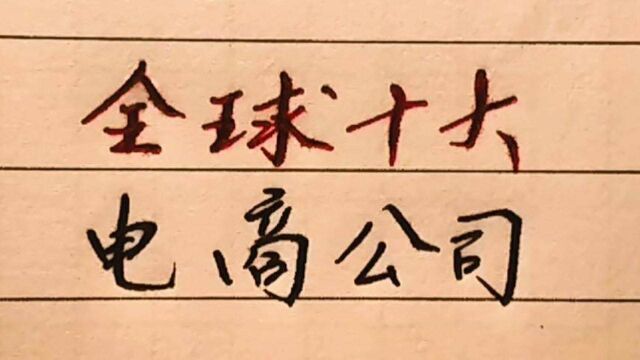 全球十大
电商公司